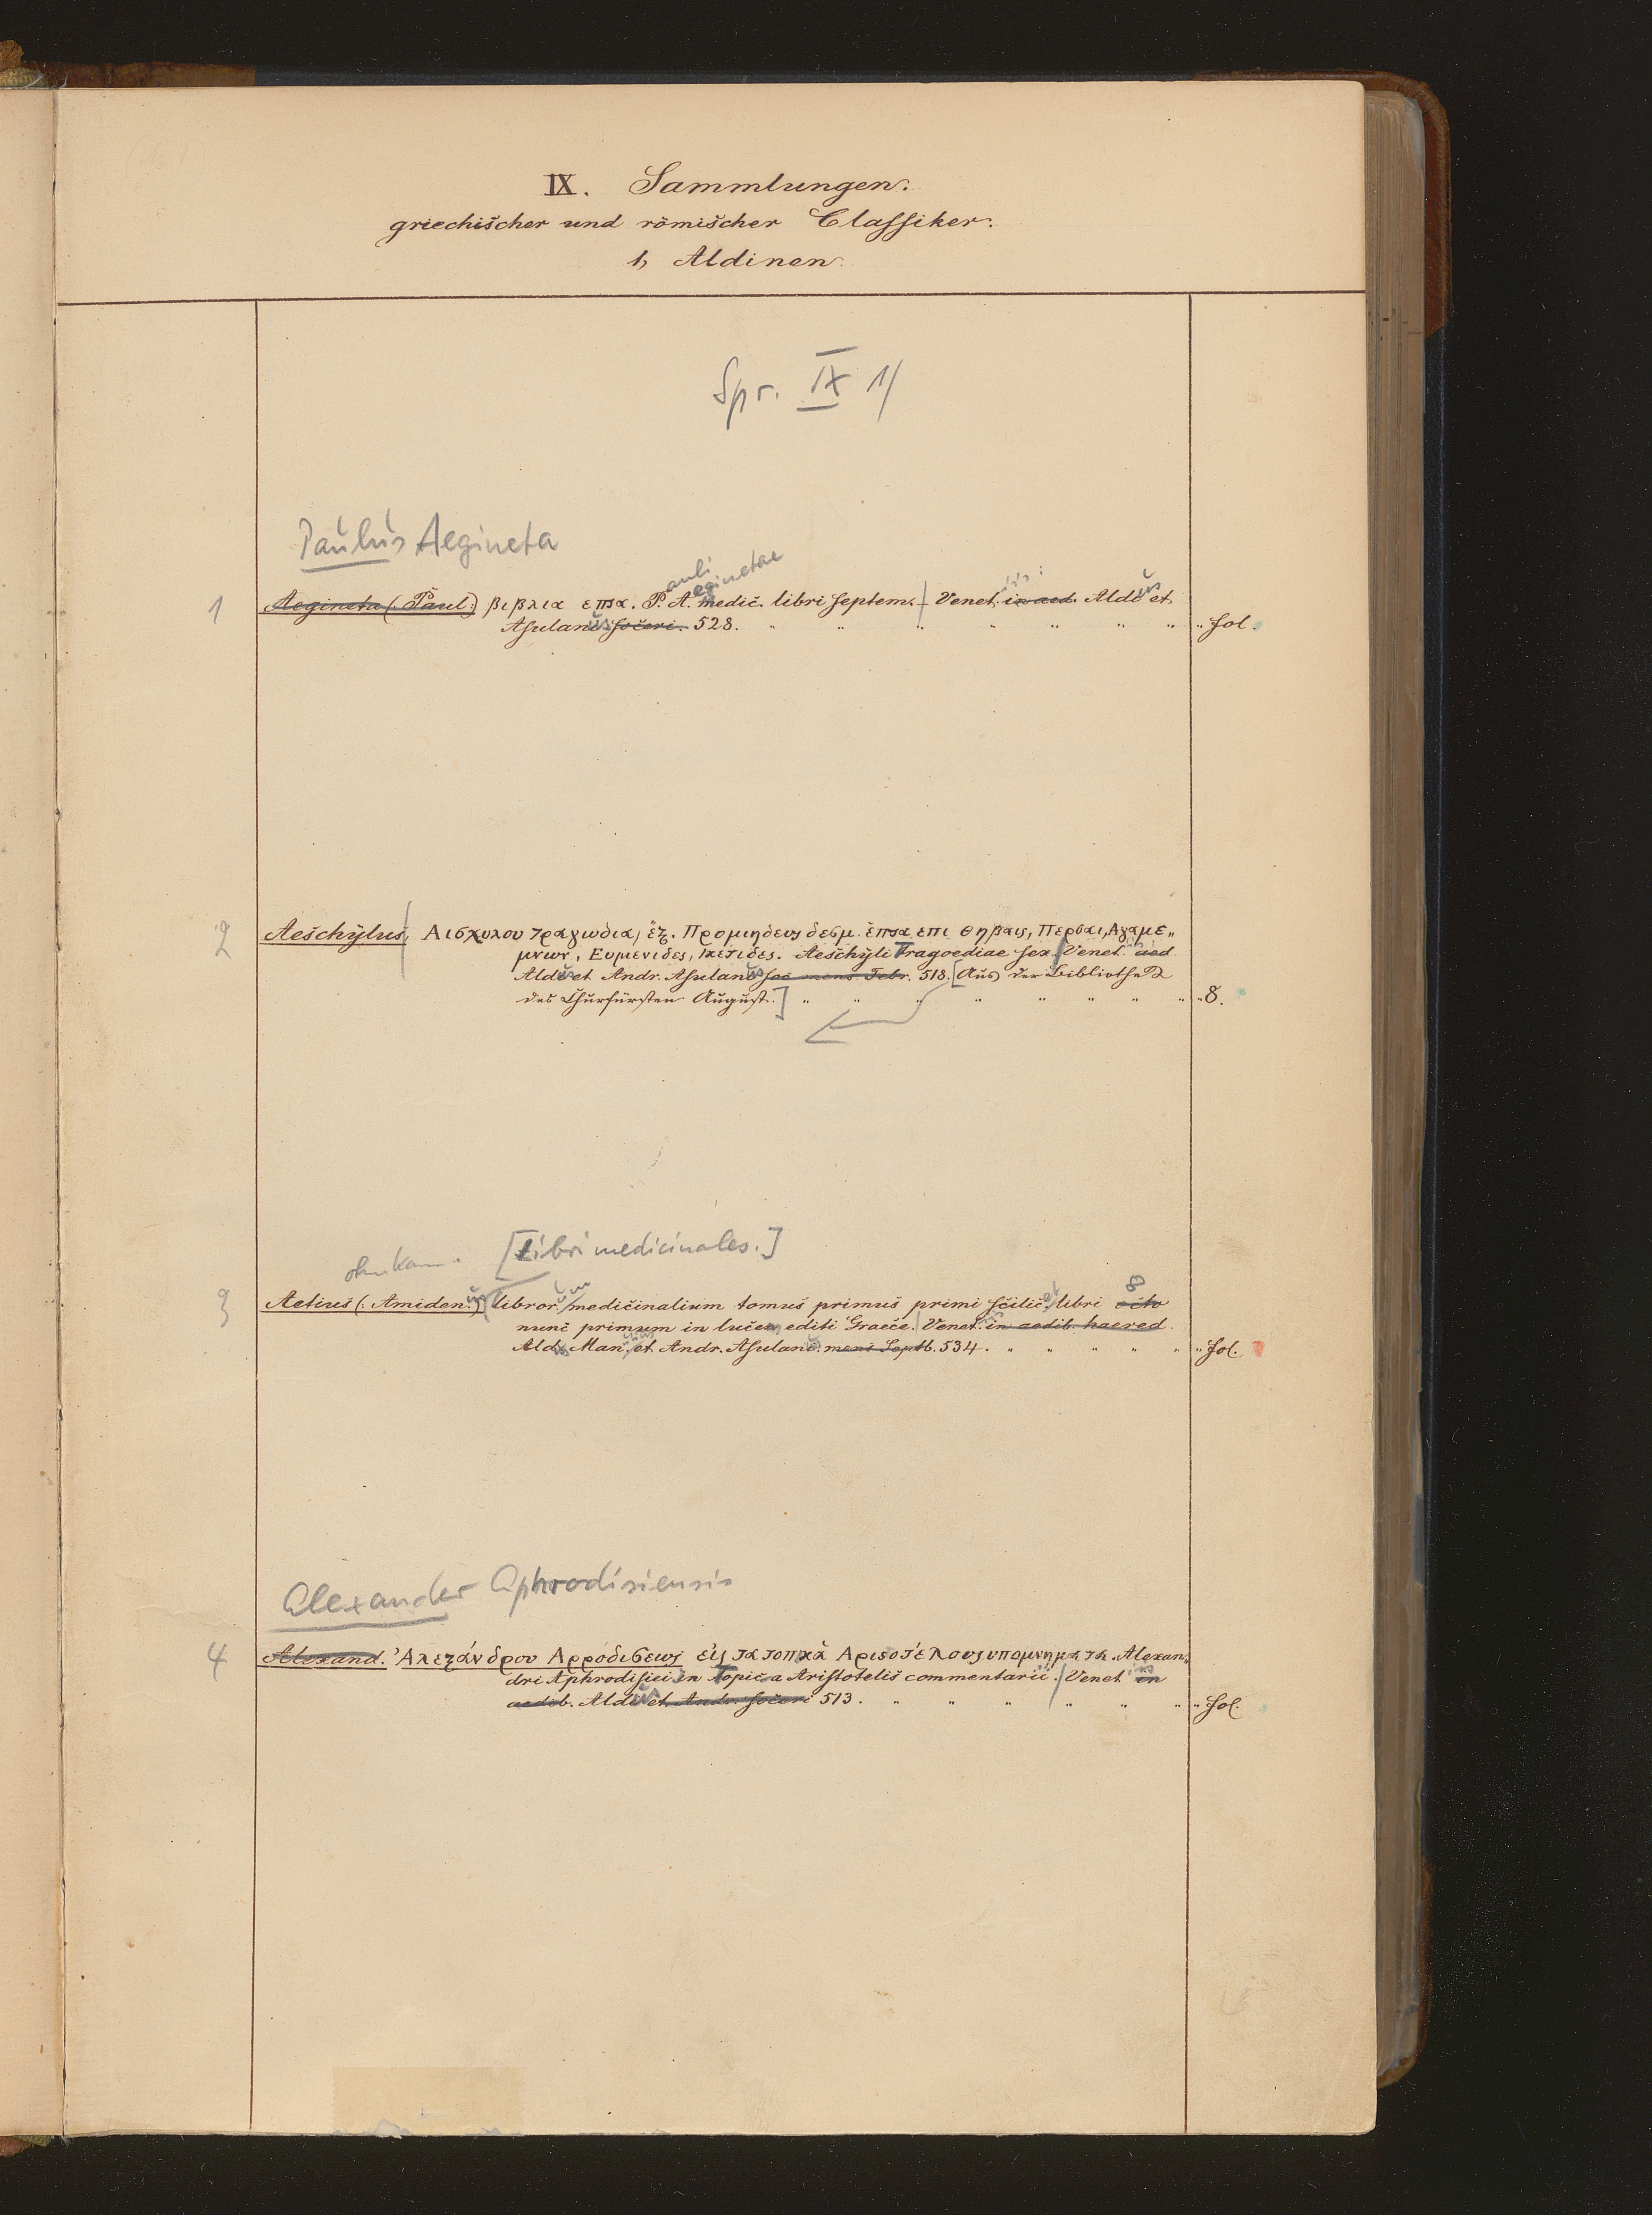 IX. Sammlungen.
griechischer und römischer Classiker.
1, Aldinen.
Spr. IX 1/
Paulus Aegineta
auli eginetae
1 Aegineta (: Paul:) βιβλια επτα. P. A. medic. libri septem. Venet. in aed. Aldi et
Asulani soceri. 528. fol.
2 Aeschylus, Αισχυλου τραγωδια, ἑξ. Προμηδευς δεσμ. ἑπτα επι Θηβαις, Περσαι, Αγαμε„
μνων, Ευμενιδες, Ικετιδες. Aeschyli Tragoediae sex. Venet. aed.
Aldi et Andr. Asulani soc mens Febr. 518. [Aus der Bibliothek
des Churfürsten August.] 8.
[Libri medicinales.]
8
3 Aetius (: Amiden:) libror. medicinalium tomus primus primi scilic. libri octo
nunc primum in lucem editi Graece. Venet. in aedib. haered.
Ald. Man. et Andr. Asulani. mens Septb. 534. fol.
Alexander Aphrodisiensis
4 Alexand. Ἀλεξάνδρου Αφροδισεως εἰς τα τοπικὰ Αριστοτέλους υπομνηματα. Alexan„
dri Aphrodisiei in Topica Aristotelis commentarii. Venet. in
aedib. Aldi et Andr. soceri 513. fol.